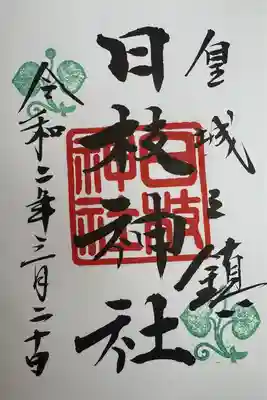 皇城之鎮
日枝神社
日枝神社
令和二年三月二十日